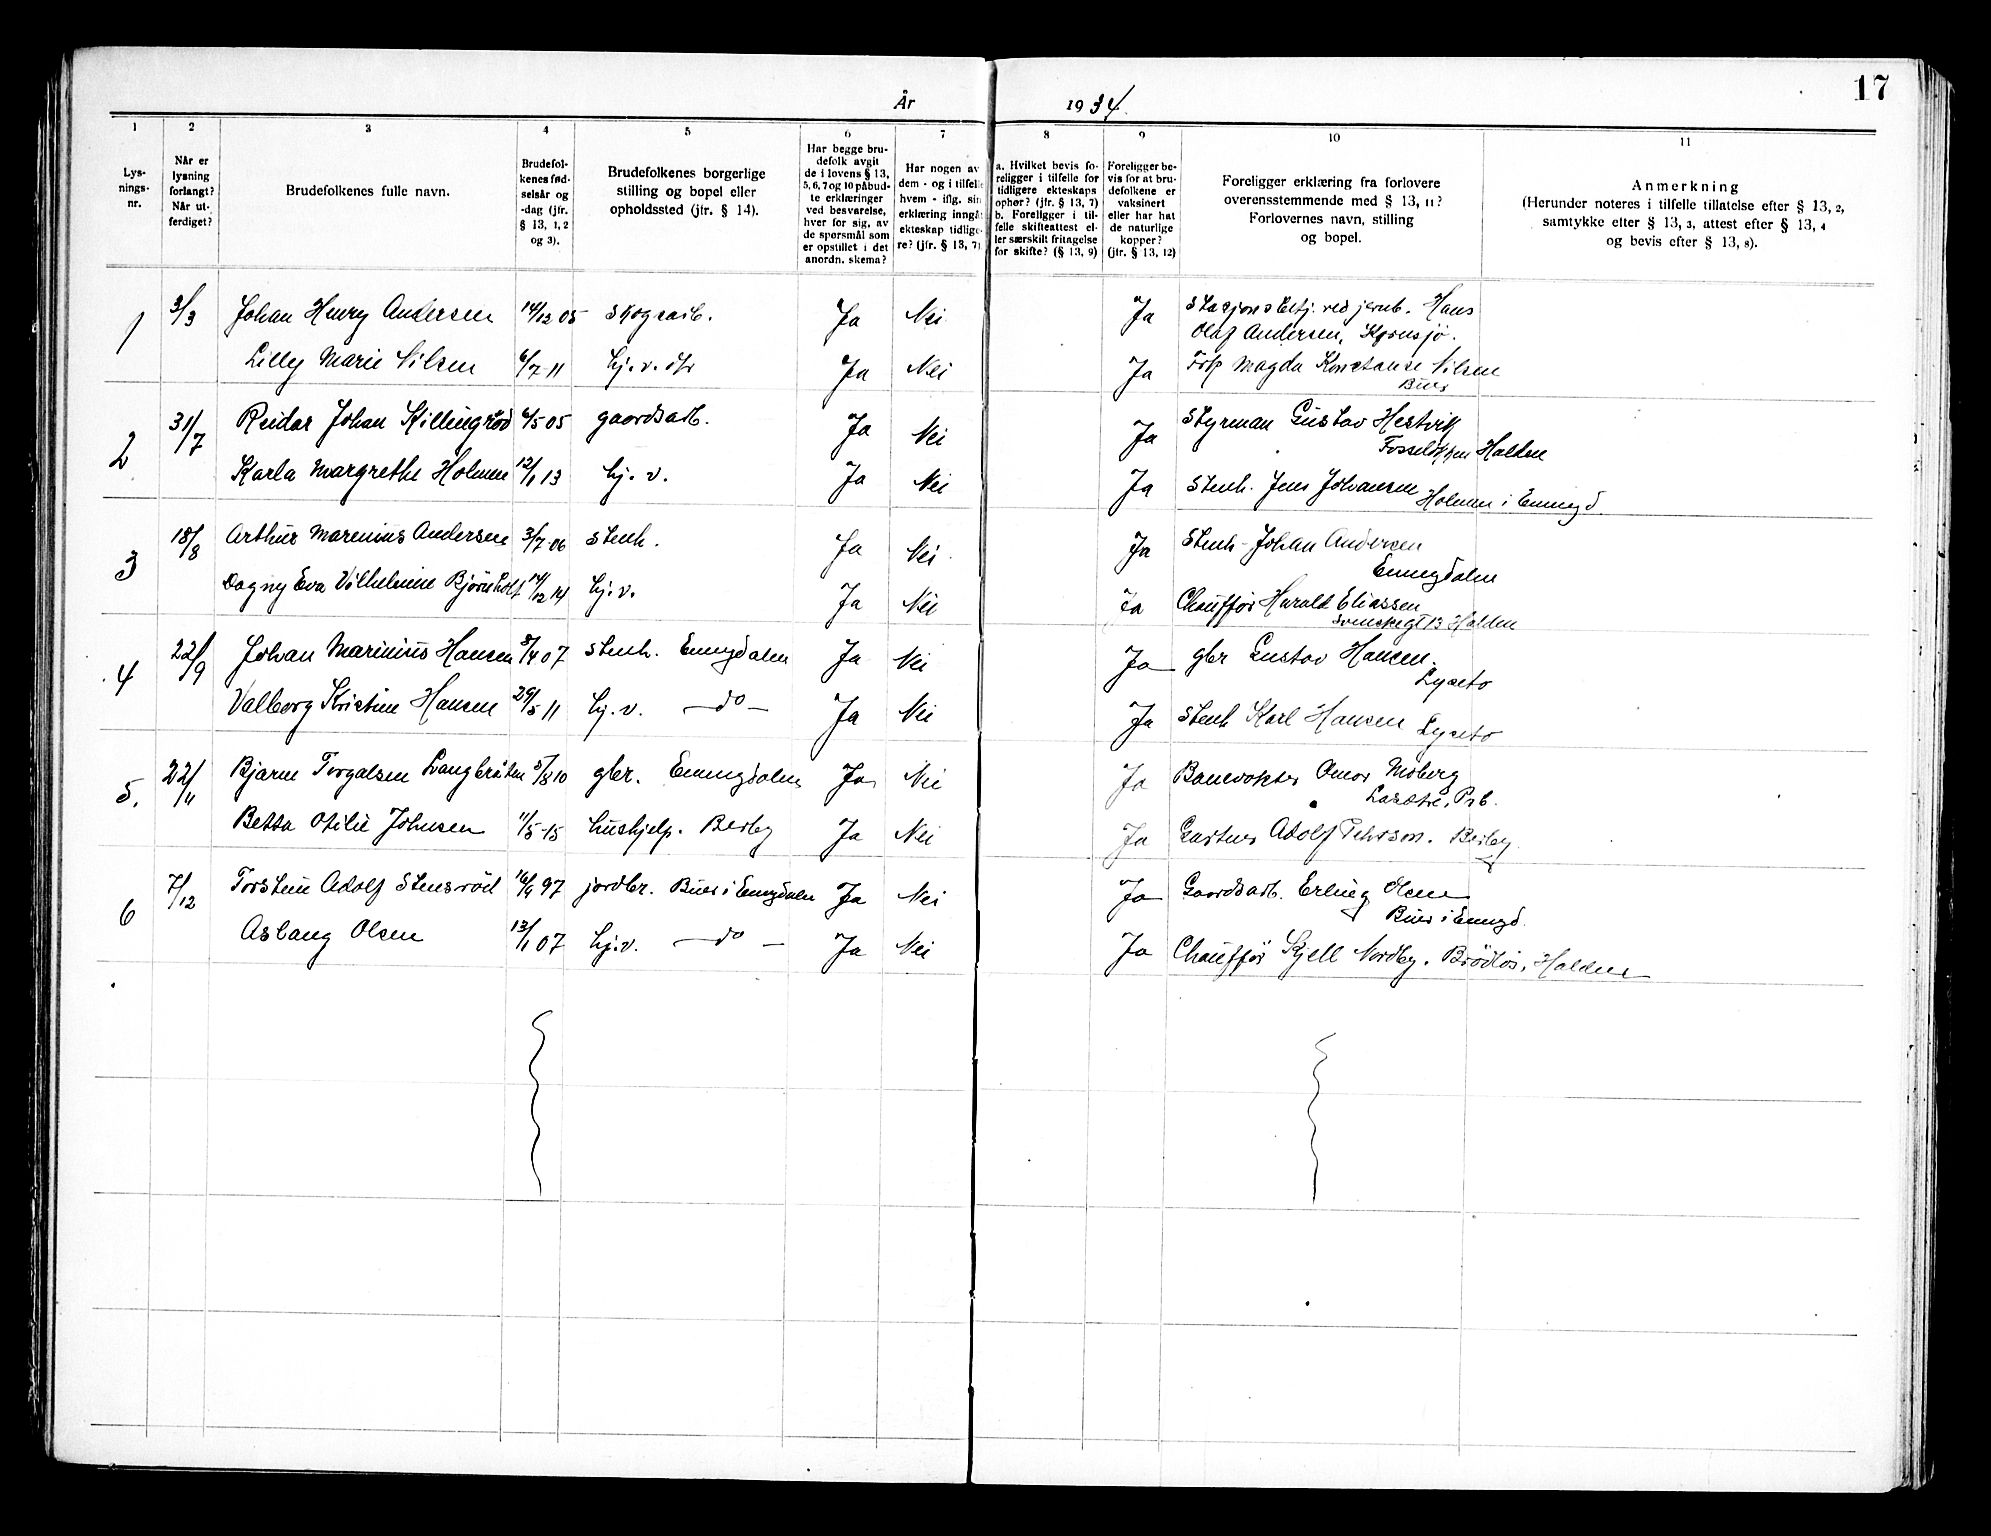 17
År 1934.
1 2 3 4 5 6 7 8 9 10 11
Lys-
nings-
nr.
Når er
lysning
forlangt?
Når ut-
ferdiget?
Brudefolkenes fulle navn.
Brudefol-
kenes fød-
selsår og
-dag (jfr.
§ 13, 1, 2
og 3).
Brudefolkenes borgerlige
stilling og bopel eller
opholdssted (jfr. § 14).
Har begge bru-
defolk avgit
de i lovens § 13,
5, 6, 7 og 10 påbud-
te erklæringer
ved besvarelse,
hver for sig, av
de spørsmål som
er opstillet i det
anordn. skema?
Har nogen av
dem - og i tilfelle
hvem - iflg. sin
erklæring inngått
ekteskap tidlige-
re? (jfr. § 13, 7)
a. Hvilket bevis fo-
religger i tilfelle for
tidligere ekteskaps
ophør? (jfr. § 13, 7)
b. Foreligger i til-
felle skifteattest el-
ler særskilt fritagelse
for skifte? (§ 13, 9)
Foreligger be-
vis for at bru-
defolkene er
vaksinert
eller har hat
de naturlige
kopper?
(jfr. § 13, 12)
Foreligger erklæring fra forlovere
overensstemmende med § 13, 11?
Forlovernes navn, stilling
og bopel.
Anmerkning
(Herunder noteres i tilfelle tillatelse efter § 13, 2,
samtykke efter § 13, 3, attest efter § 13, 4
og bevis efter § 13, 8).
1 3/3 Johan Henry Andersen 14/12 05 skogsarb. Ja Nei Ja Stasjonsbetj. ved jernb. Hans
Olaf Andersen, Kornsjø.
Lilly Marie Nilsen 6/7 11 hj. v. Ja Nei Ja Frk Magda Konstanse Nilsen
Buer
2 31/7 Reidar Johan Killingrød 6/5 05 gaardsarb. Ja Nei Ja Styrman Gustav Hestvik
Fosseløkken Halden
Karla Margrethe Holmen 12/1 13 hj. v. Ja Nei Ja Stenh. Jens Johansen Holmen i Enningd.
3 18/8 Arthur Marenius Andersen 3/7 06 stenh. Ja Nei Ja Stenh. Johan Andersen
Enningdalen
Dagny Eva Vilhelmine Bjørnholt 14/12 14 hj. v. Ja Nei Ja Chauffør Harald Eliassen
Svenskegt 13 Halden
4 22/9 Johan Marinius Hansen 8/4 07 stenh. Enningdalen Ja Nei Ja gbr Gustav Hansen.
Lyseto
Valborg Kristine Hansen 29/5 11 hj. v. — do — Ja Nei Ja Stenh Karl Hansen Lyseto
5. 22/11 Bjarne Torgalsen Langbråten 5/8 10 gbr. Enningdalen Ja Nei Ja Banevokter Omar Moberg
Prb.
Betta Otilie Johnsen 11/5 15 hushjelp. Berby Ja Nei Ja Gartner Adolf Pehrson. Berby
6 7/12 Torstein Adolf Stensrød 16/9 97 jordbr. Buer i Enningdalen Ja Nei Ja Gaardsarb. Erling Olsen
Buer i Enningd.
Aslaug Olsen 13/1 07 hj. v. — do — Ja Nei Ja Chauffør Kjell Nordby. Brødløs, Halden